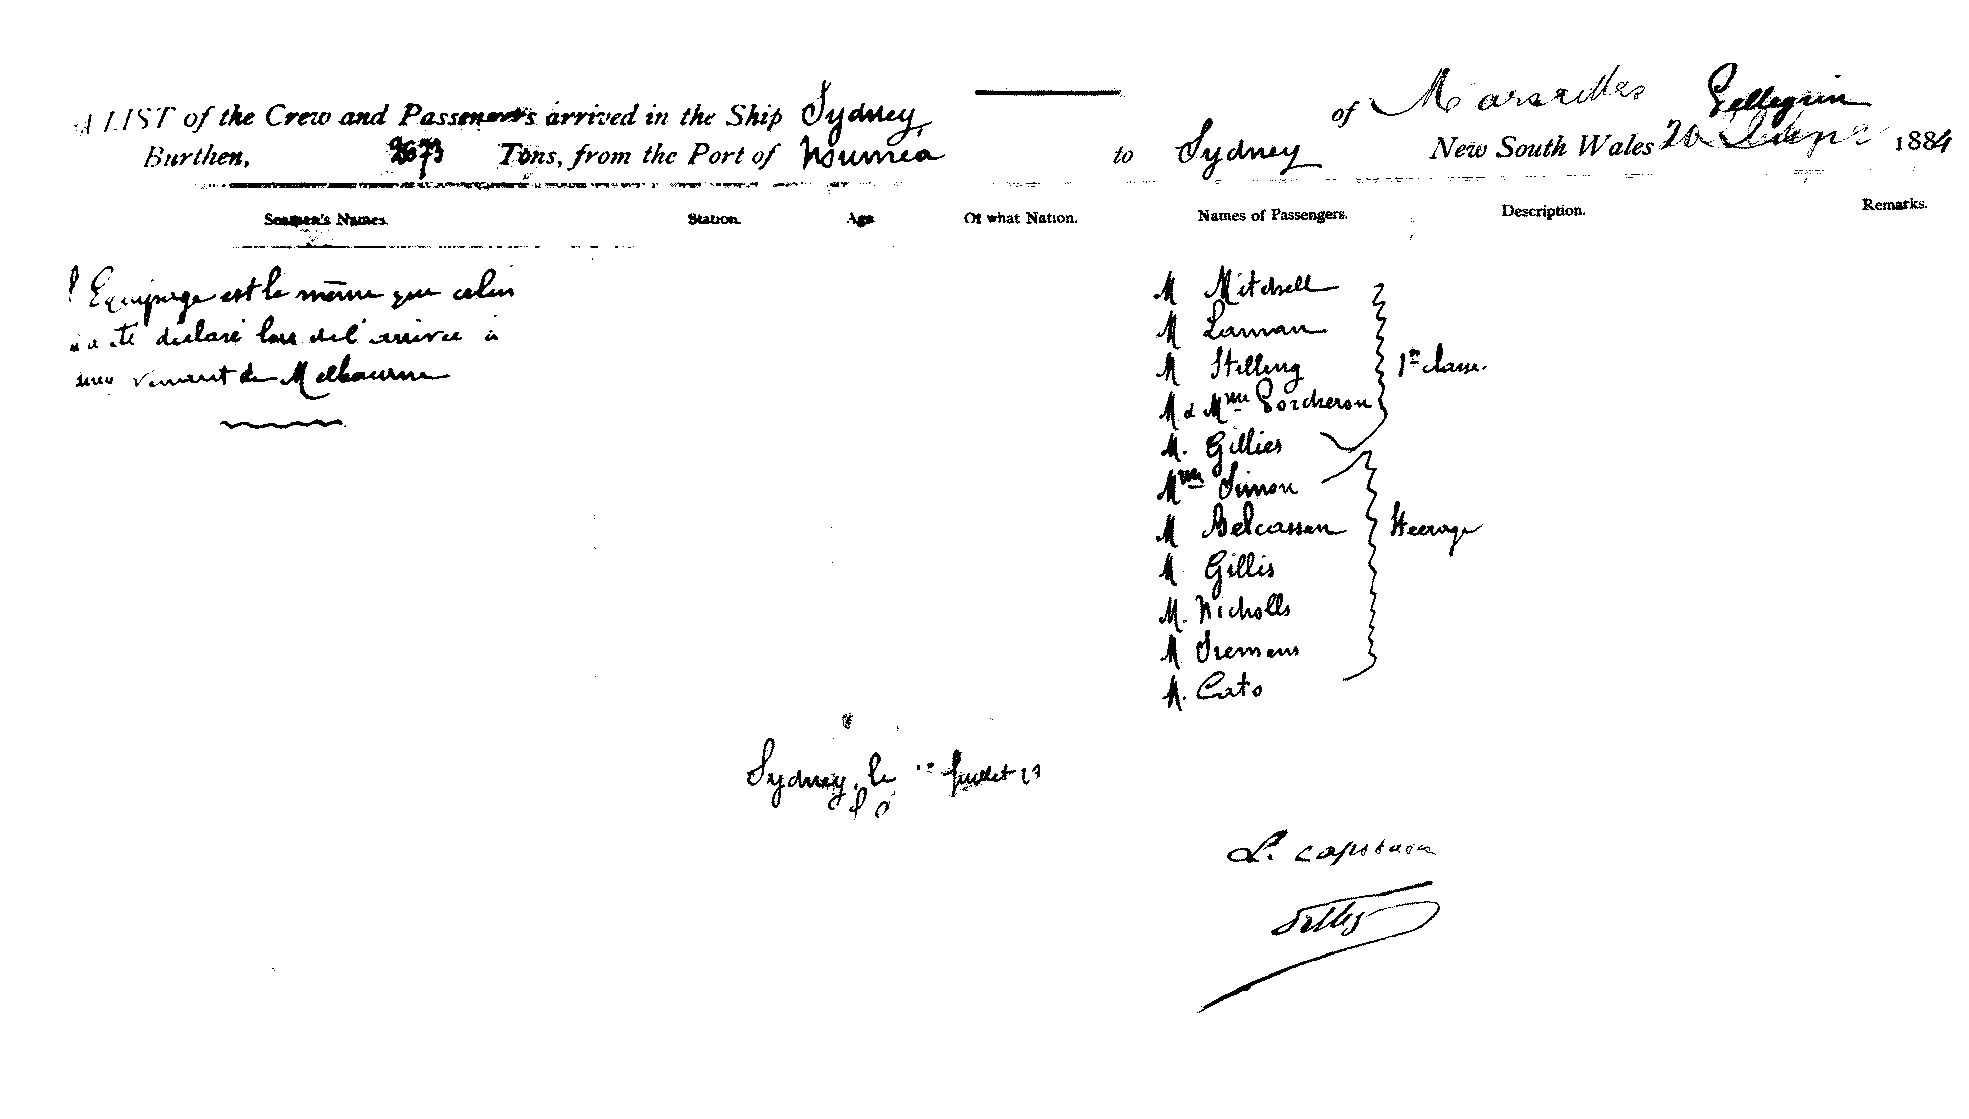 A LIST of the Crew and Passengers arrived in the Ship Sydney, of Marseilles Pellegrin
Burthen, 2673 Tons, from the Port of Noumea to Sydney New South Wales 20 1884
Seamen's Names. Station. Age Of what Nation. Names of Passengers. Description. Remarks.
l'Equipage est le même que celui
a été déclaré lors de l'arrivée à
venant de Melbourne
M Mitchell
M Laman
M Stelling 1re classe.
M & Mme Porcheron
M. Gillies
Mme Simon
M Belcassen Steerage
M Gillis
M. Nicholls
M Siemens
M. Cato
Sydney, le Juillet